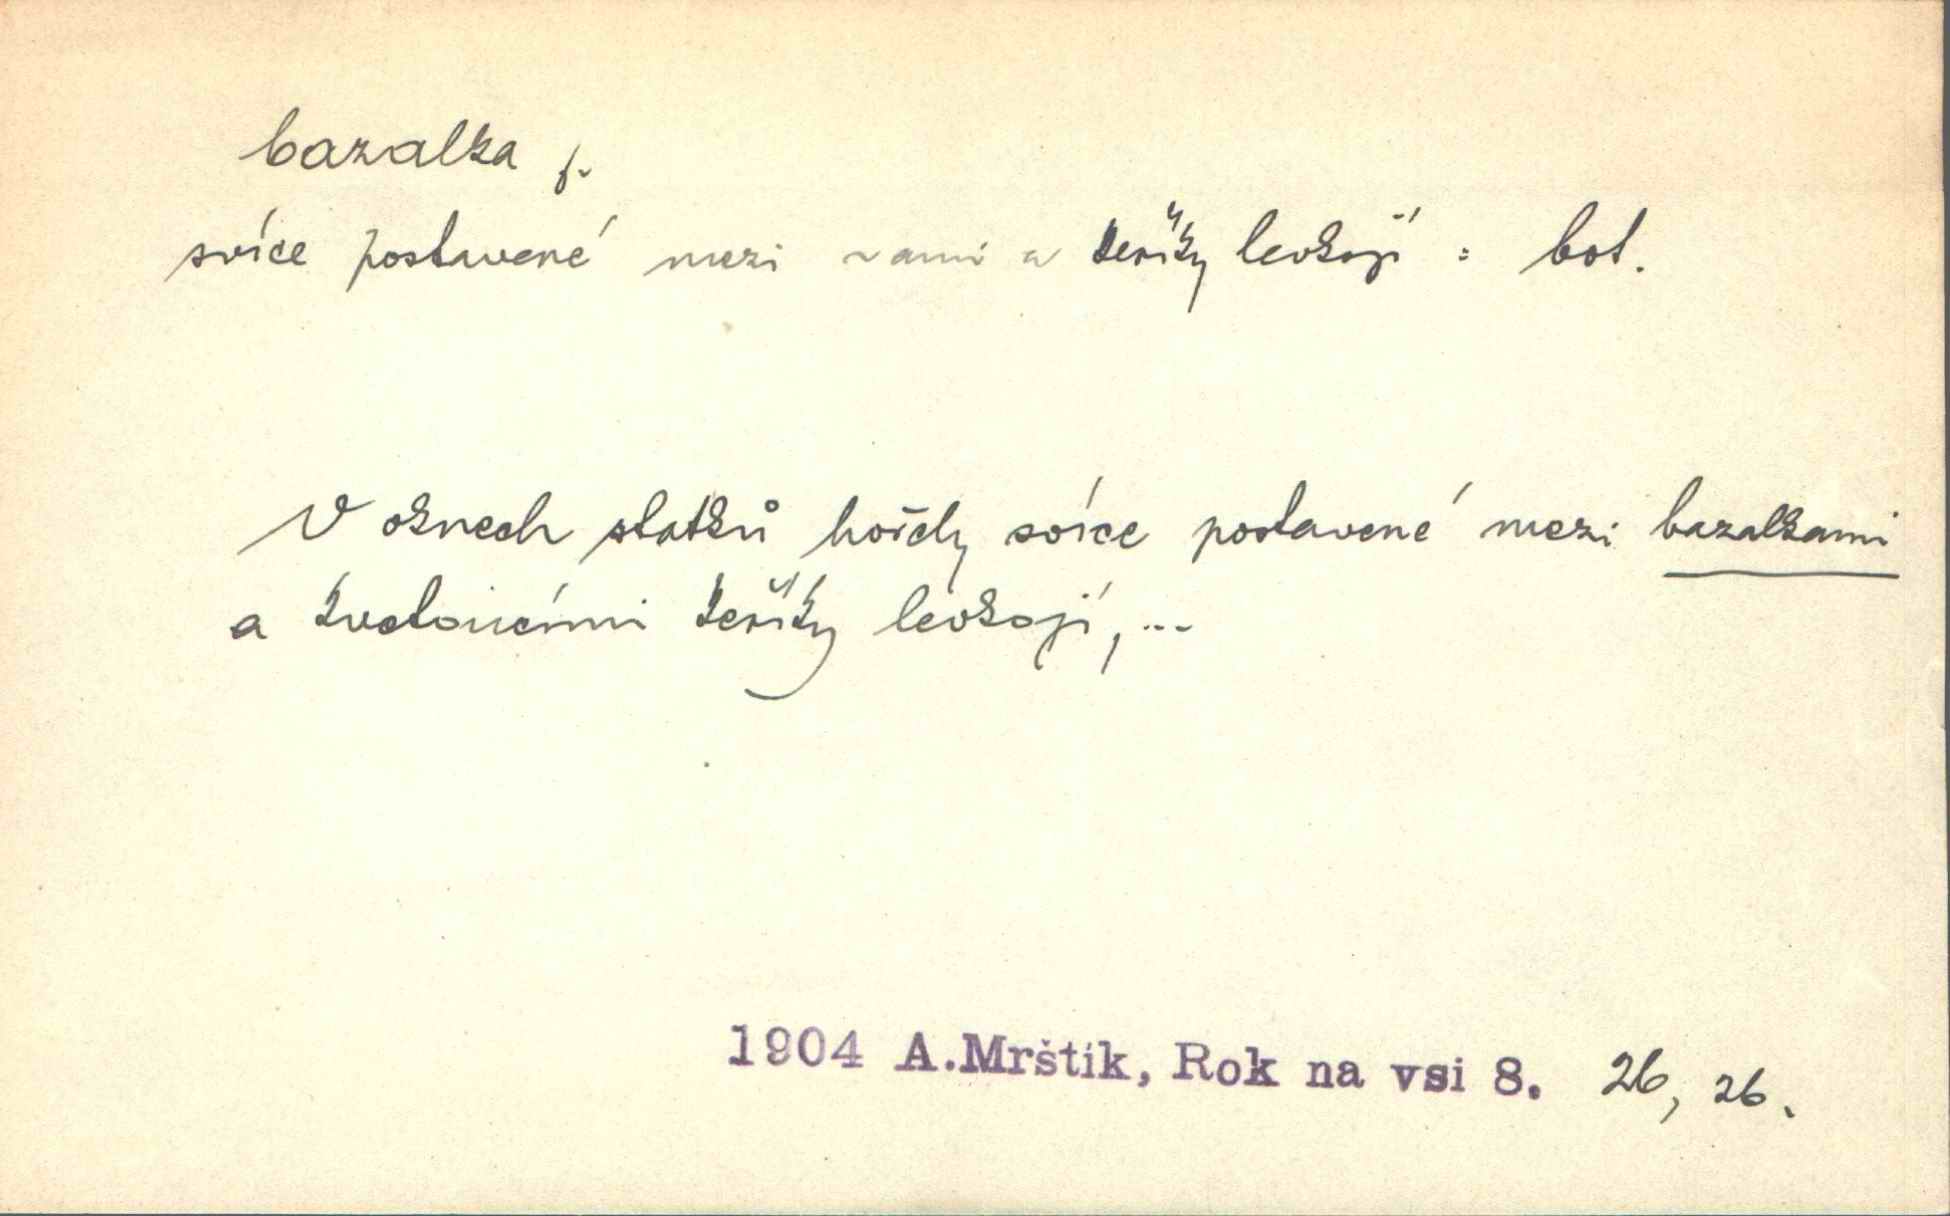 bazalka f.
svíce postavené mezi ~ami a keříky levkojí : bot.
V oknech statků hořely svíce postavené mezi bazalkami
a kvetoucími keříky levkojí, ...
1904 A.Mrštík, Rok na vsi 8. 26, 26.